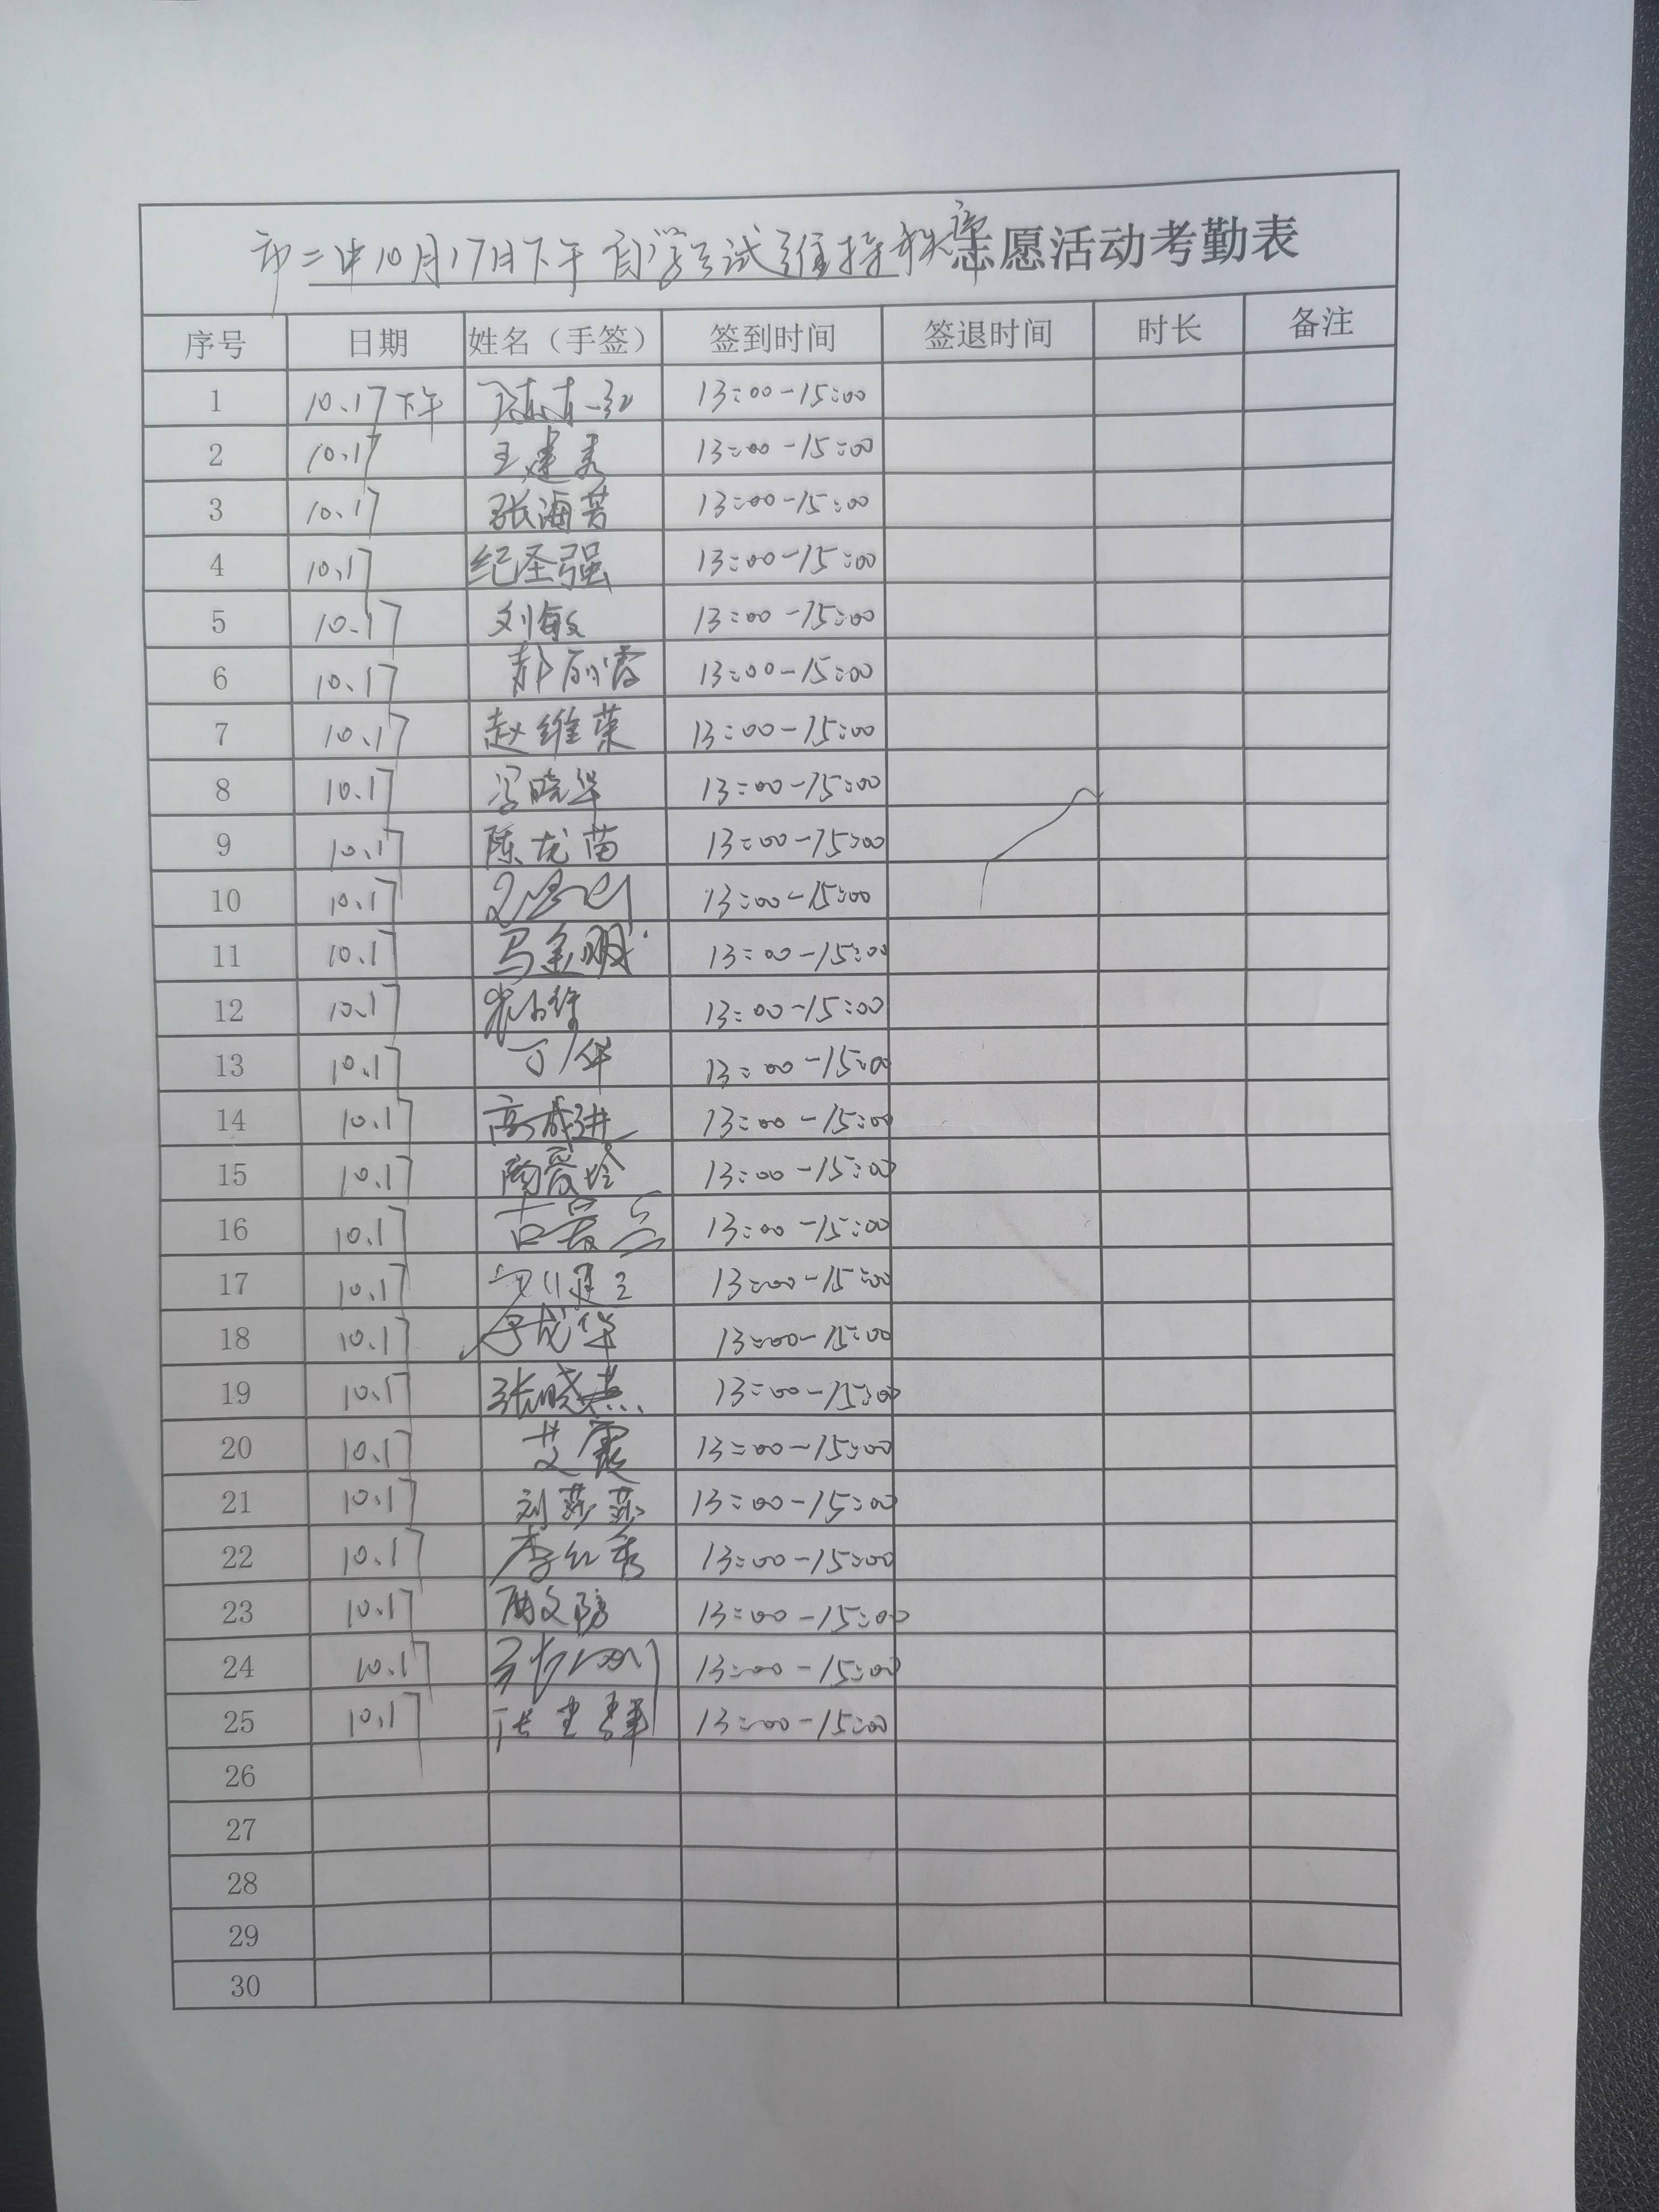 市二中10月17日下午自学考试维持秩序志愿活动考勤表
序号 日期 姓名（手签） 签到时间 签退时间 时长 备注
1 10.17下午 13:00-15:00
2 10.17 王建秀 13:00-15:00
3 10.17 张海芳 13:00-15:00
4 10.17 纪圣强 13:00-15:00
5 10.17 刘敏 13:00-15:00
6 10.17 郝丽霞 13:00-15:00
7 10.17 赵维荣 13:00-15:00
8 10.17 冯晓华 13:00-15:00
9 10.17 陈龙苗 13:00-15:00
10 10.17 13:00-15:00
11 10.17 马金明 13:00-15:00
12 10.17 13:00-15:00
13 10.17 丁华 13:00-15:00
14 10.17 高成进 13:00-15:00
15 10.17 13:00-15:00
16 10.17 13:00-15:00
17 10.17 13:00-15:00
18 10.17 13:00-15:00
19 10.17 张晓燕 13:00-15:00
20 10.17 艾霞 13:00-15:00
21 10.17 刘莎莎 13:00-15:00
22 10.17 李红秀 13:00-15:00
23 10.17 13:00-15:00
24 10.17 13:00-15:00
25 10.17 13:00-15:00
26
27
28
29
30